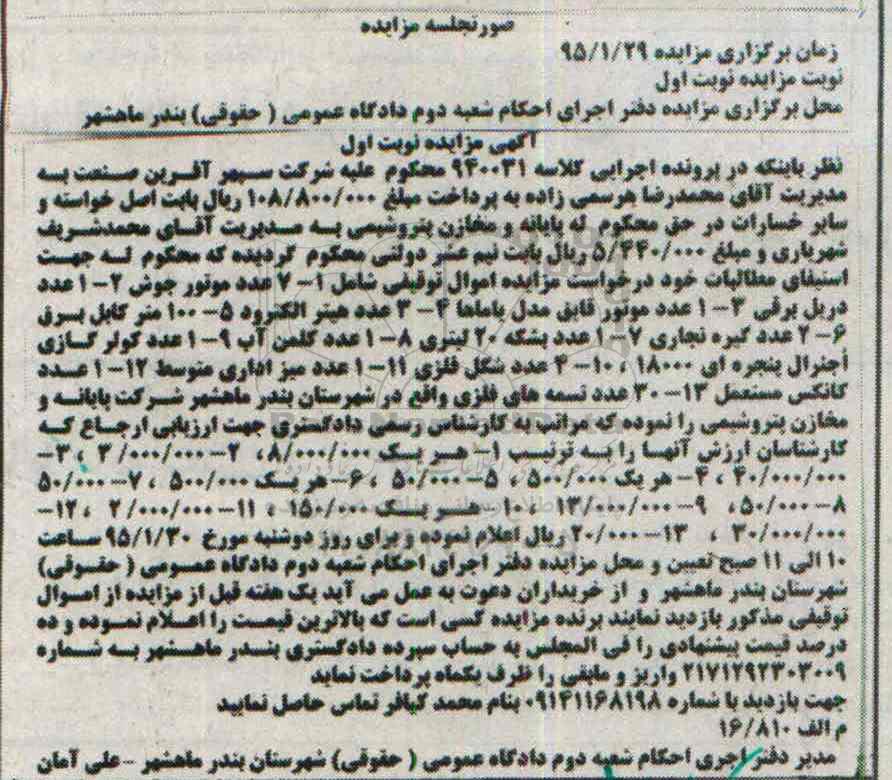 صورتجلسه مزایده
زمان برگزاری مزایده ۹۵/۱/۲۹
نوبت مزایده نوبت اول
محل برگزاری مزایده دفتر اجرای احکام شعبه دوم دادگاه عمومی ( حقوقی) بندر ماهشهر
آگهی مزایده نوبت اول
نظر باینکه در پرونده اجرایی کلاسه ۹۴۰۰۳۱ محکوم علیه شرکت سپهر آفرین صنعت به
مدیریت آقای محمدرضا هرسمی زاده به پرداخت مبلغ ۱۰۸/۸۰۰/۰۰۰ ریال بابت اصل خواسته و
سایر خسارات در حق محکوم له پایانه و مخازن پتروشیمی به مدیریت آقای محمدشریف
شهریاری و مبلغ ۵/۴۴۰/۰۰۰ ریال بابت نیم عشر دولتی محکوم گردیده که محکوم له جهت
استیفای مطالبات خود درخواست مزایده اموال توقیفی شامل ۱- ۷ عدد موتور جوش ۲- ۱ عدد
دریل برقی ۳- ۱ عدد موتور قایق مدل یاماها ۴- ۳ عدد هیتر الکترود ۵- ۱۰۰ متر کابل برق
۶- ۲ عدد گیره نجاری ۷- ۱ عدد بشکه ۲۰ لیتری ۸- ۱ عدد کلمن آب ۹- ۱ عدد کولر گازی
اجنرال پنجره ای ۱۸۰۰۰ ، ۱۰- ۴ عدد شگل فلزی ۱۱- ۱ عدد میز اداری متوسط ۱۲- ۱ عدد
کانکس مستعمل ۱۳- ۳۰ عدد تسمه های فلزی واقع در شهرستان بندر ماهشهر شرکت پایانه و
مخازن پتروشیمی را نموده که مراتب به کارشناس رسمی دادگستری جهت ارزیابی ارجاع که
کارشناسان ارزش آنها را به ترتیب ۱- هر یک ۸/۰۰۰/۰۰۰، ۲- ۳/۰۰۰/۰۰۰ ، ۳-
۴۰/۰۰۰/۰۰۰ ، ۴- هر یک ۵۰۰/۰۰۰ ، ۵- ۵۰/۰۰۰ ، ۶- هر یک ۵۰۰/۰۰۰ ، ۷- ۵۰/۰۰۰
۸- ۵۰/۰۰۰، ۹- ۱۳/۰۰۰/۰۰۰ ، ۱۰- هر یک ۱۵۰/۰۰۰ ، ۱۱- ۲/۰۰۰/۰۰۰ ، ۱۲-
۳۰/۰۰۰/۰۰۰ ، ۱۳- ۲۰/۰۰۰ ریال اعلام نموده و برای روز دوشنبه مورخ ۹۵/۱/۳۰ ساعت
۱۰ الی ۱۱ صبح تعیین و محل مزایده دفتر اجرای احکام شعبه دوم دادگاه عمومی ( حقوقی)
شهرستان بندر ماهشهر و از خریداران دعوت به عمل می آید یک هفته قبل از مزایده از اموال
توقیفی مذکور بازدید نمایند برنده مزایده کسی است که بالاترین قیمت را اعلام نموده و ده
درصد قیمت پیشنهادی را فی المجلس به حساب سپرده دادگستری بندر ماهشهر به شماره
۲۱۷۱۲۹۲۳۰۳۰۰۹ واریز و مابقی را ظرف یکماه پرداخت نماید
جهت بازدید با شماره ۰۹۱۴۱۱۶۸۱۹۸ بنام محمد کیافر تماس حاصل نمایید
م الف ۱۶/۸۱۰
مدیر دفتر اجری احکام شعبه دوم دادگاه عمومی ( حقوقی) شهرستان بندر ماهشهر -علی آمان